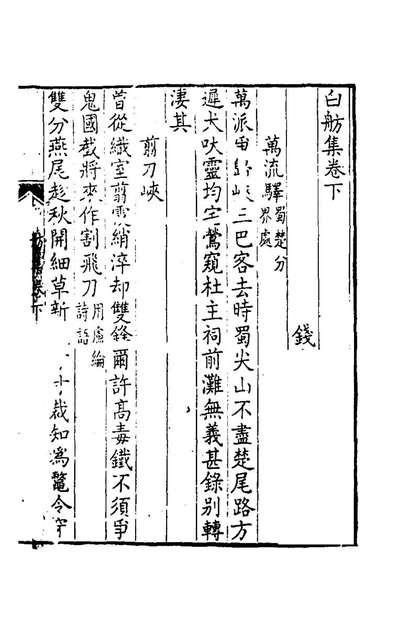 白舫集卷下
錢
萬流驛蜀楚分界處
萬派束歸峽三巴客去時蜀尖山不盡楚尾路方
遲犬吠靈均宅鶯窺杜主祠前灘無義甚錄別轉
淒其
翦刀峽
曾從織室翦雲綃淬却雙鋒爾許高毒鐵不須爭
鬼國截將來作割飛刀用盧綸詩語
雙分燕尾趁秋開細草新 裁知為鼈令穿